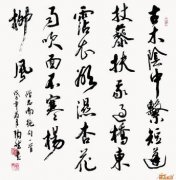 古木陰中繫短篷
杖藜扶我過橋東
霑衣欲濕杏花
雨吹面不寒楊
柳風